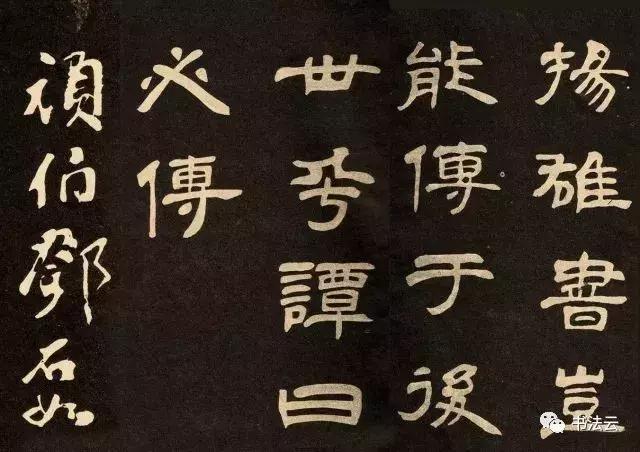 揚雄書豈
能傳于後
世乎譚曰
必傳
頑伯鄧石如
书法云